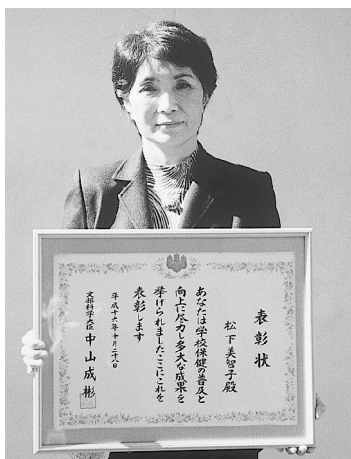 表彰状
松下美智子殿
あなたは学校保健の普及と
向上に尽力し多大な成果を
挙げられましたここにこれを
表彰します
平成十六年十月二十八日
文部科学大臣 中山成彬